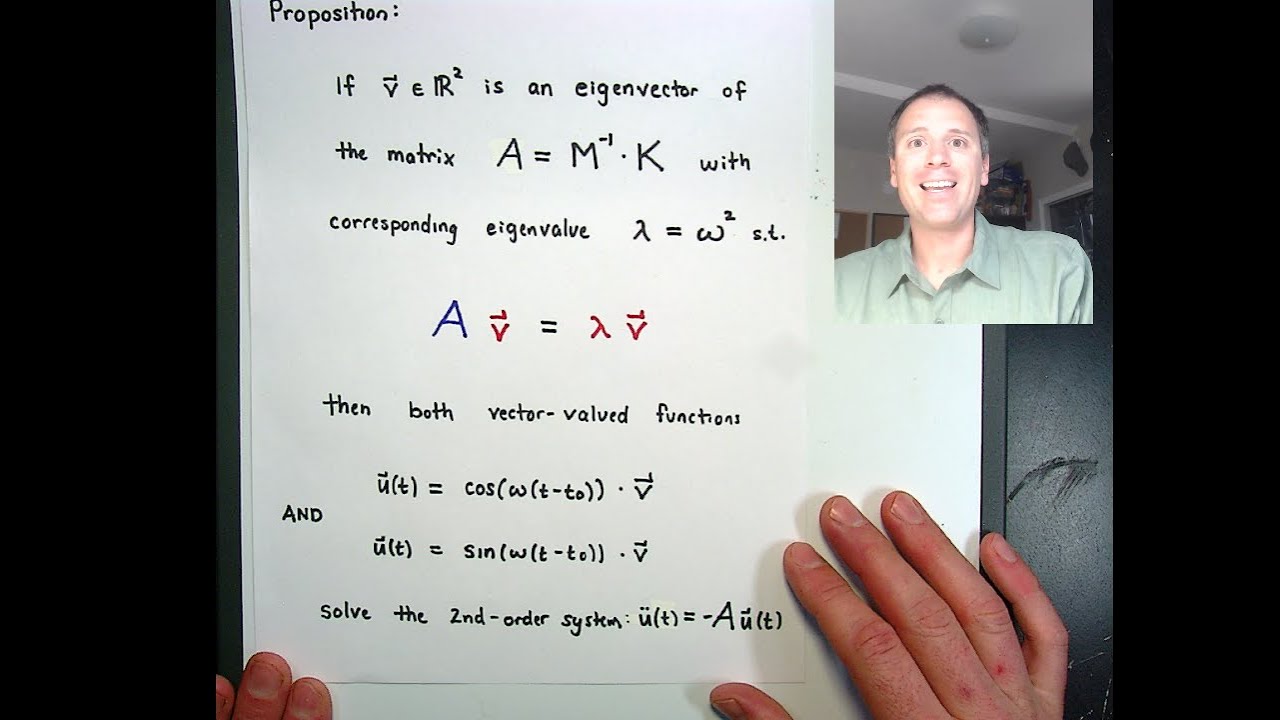 Proposition:
If v⃗ ∈ ℝ² is an eigenvector of
the matrix A = M⁻¹ · K with
corresponding eigenvalue λ = ω² s.t.
A v⃗ = λ v⃗
then both vector-valued functions
u⃗(t) = cos(ω(t-t₀)) · v⃗
AND
u⃗(t) = sin(ω(t-t₀)) · v⃗
solve the 2nd-order system: ü⃗(t) = -A u⃗(t)